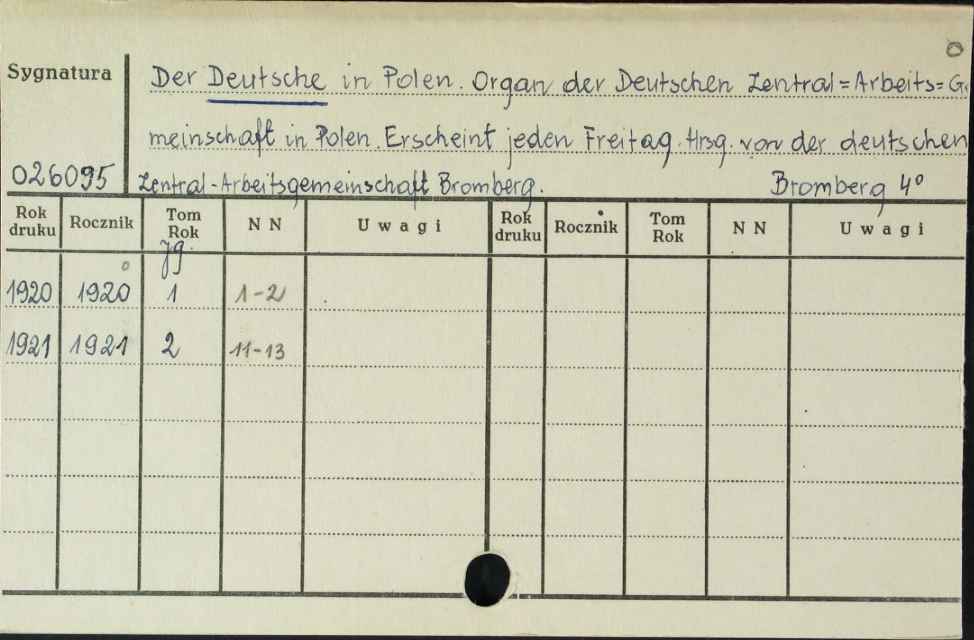 Sygnatura
Der Deutsche in Polen. Organ der Deutschen Zentral=Arbeits=Ge
meinschaft in Polen. Erscheint jeden Freitag. Hrsg. von der deutschen
026095 Zentral-Arbeitsgemeinschaft Bromberg. Bromberg 4°
Rok druku Rocznik Tom Rok N N Uwagi Rok druku Rocznik Tom Rok N N Uwagi
Jg.
1920 1920 1 1-2
1921 1921 2 11-13